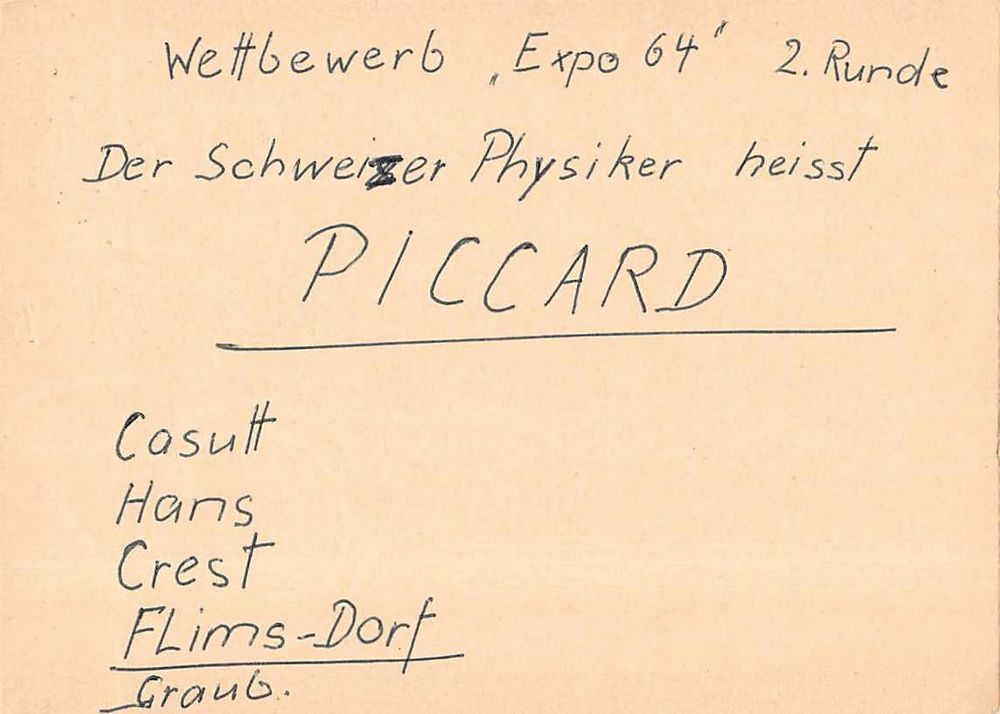 Wettbewerb „Expo 64" 2. Runde
Der Schweizer Physiker heisst
PICCARD
Casutt
Hans
Crest
FLims-Dorf
Graub.